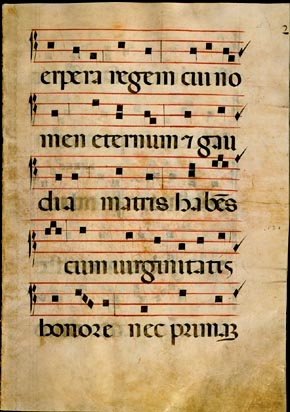 2
erpera regem cui no
men eternum ⁊ gau
dia matris habēs
cum uirginitatis
honore nec primaꝫ